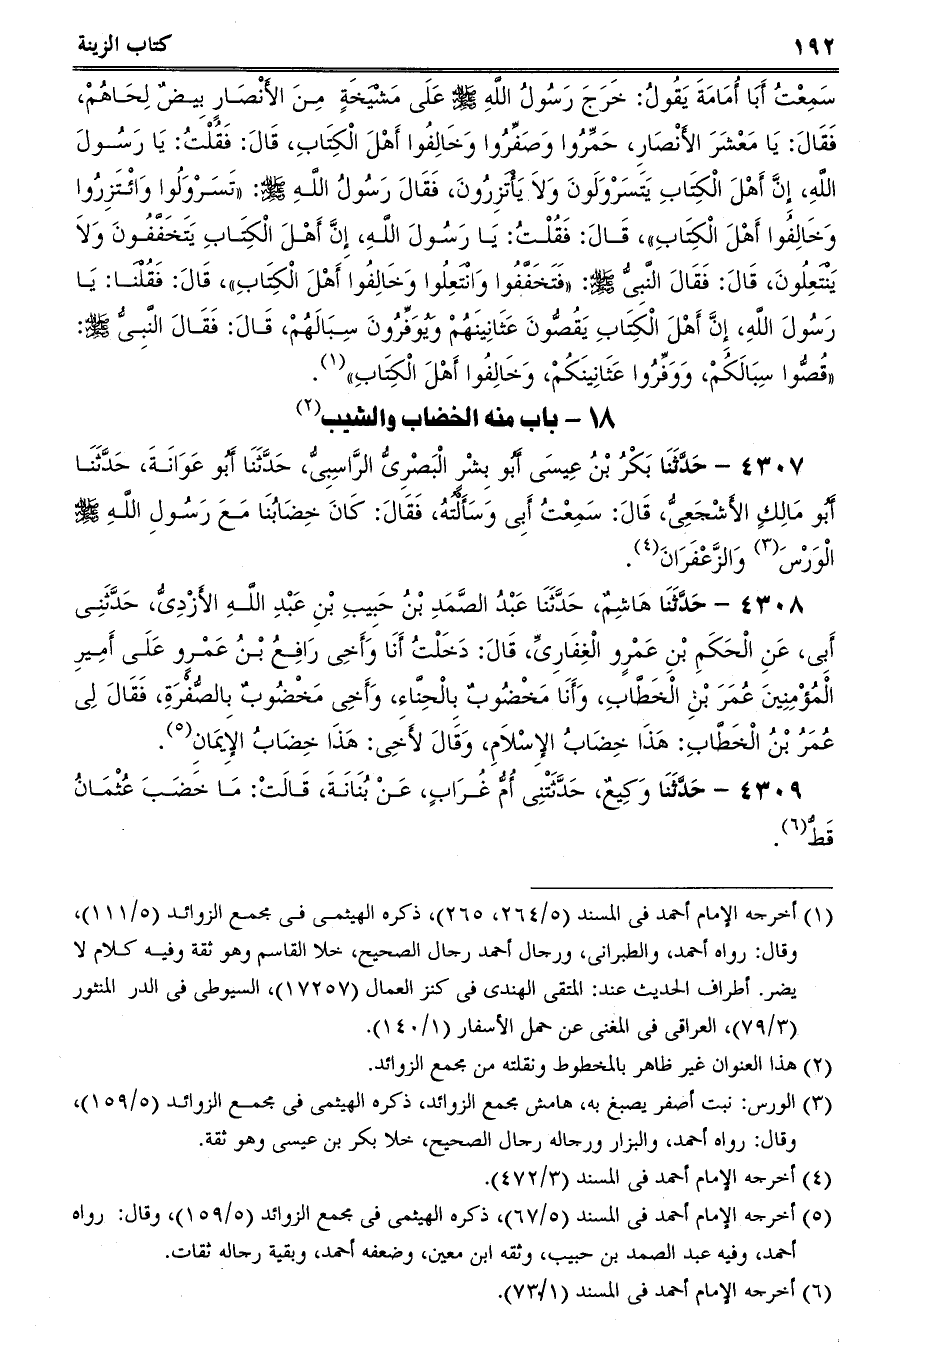 ١٩٢ كتاب الزينة
سَمِعْتُ أَبَا أُمَامَةَ يَقُولُ: خَرَجَ رَسُولُ اللَّهِ ﷺ عَلَى مَشْيَخَةٍ مِنَ الأَنْصَارِ بِيضٌ لِحَاهُمْ،
فَقَالَ: يَا مَعْشَرَ الأَنْصَارِ، حَمِّرُوا وَصَفِّرُوا وَخَالِفُوا أَهْلَ الْكِتَابِ، قَالَ: فَقُلْتُ: يَا رَسُولَ
اللَّهِ، إِنَّ أَهْلَ الْكِتَابِ يَتَسَرْوَلُونَ وَلاَ يَأْتَزِرُونَ، فَقَالَ رَسُولُ اللَّهِ ﷺ: «تَسَرْوَلُوا وَائْتَزِرُوا
وَخَالِفُوا أَهْلَ الْكِتَابِ»، قَالَ: فَقُلْتُ: يَا رَسُولَ اللَّهِ، إِنَّ أَهْلَ الْكِتَابِ يَتَخَفَّفُونَ وَلاَ
يَنْتَعِلُونَ، قَالَ: فَقَالَ النَّبِىُّ ﷺ: «فَتَخَفَّفُوا وَانْتَعِلُوا وَخَالِفُوا أَهْلَ الْكِتَابِ»، قَالَ: فَقُلْنَا: يَا
رَسُولَ اللَّهِ، إِنَّ أَهْلَ الْكِتَابِ يَقُصُّونَ عَثَانِينَهُمْ وَيُوَفِّرُونَ سِبَالَهُمْ، قَالَ: فَقَالَ النَّبِىُّ ﷺ:
«قُصُّوا سِبَالَكُمْ، وَوَفِّرُوا عَثَانِينَكُمْ، وَخَالِفُوا أَهْلَ الْكِتَابِ»(١).
١٨ – باب منه الخضاب والشيب(٢)
٤٣٠٧ – حَدَّثَنَا بَكْرُ بْنُ عِيسَى أَبُو بِشْرٍ الْبَصْرِىُّ الرَّاسِبِىُّ، حَدَّثَنَا أَبُو عَوَانَةَ، حَدَّثَنَا
أَبُو مَالِكٍ الأَشْجَعِىُّ، قَالَ: سَمِعْتُ أَبِى وَسَأَلْتُهُ، فَقَالَ: كَانَ خِضَابُنَا مَعَ رَسُولِ اللَّهِ ﷺ
الْوَرْسَ(٣) وَالزَّعْفَرَانَ(٤).
٤٣٠٨ – حَدَّثَنَا هَاشِمٌ، حَدَّثَنَا عَبْدُ الصَّمَدِ بْنُ حَبِيبِ بْنِ عَبْدِ اللَّهِ الأَزْدِىُّ، حَدَّثَنِى
أَبِى، عَنِ الْحَكَمِ بْنِ عَمْرٍو الْغِفَارِىِّ، قَالَ: دَخَلْتُ أَنَا وَأَخِى رَافِعُ بْنُ عَمْرٍو عَلَى أَمِيرِ
الْمُؤْمِنِينَ عُمَرَ بْنِ الْخَطَّابِ، وَأَنَا مَخْضُوبٌ بِالْحِنَّاءِ، وَأَخِى مَخْضُوبٌ بِالصُّفْرَةِ، فَقَالَ لِى
عُمَرُ بْنُ الْخَطَّابِ: هَذَا خِضَابُ الإِسْلاَمِ، وَقَالَ لأَخِى: هَذَا خِضَابُ الإِيمَانِ(٥).
٤٣٠٩ – حَدَّثَنَا وَكِيعٌ، حَدَّثَتْنِى أُمُّ غُرَابٍ، عَنْ بُنَانَةَ، قَالَتْ: مَا خَضَبَ عُثْمَانُ
قَطُّ(٦).
(١) أخرجه الإمام أحمد فى المسند (٢٦٤/٥، ٢٦٥)، ذكره الهيثمى فى مجمع الزوائد (١١١/٥)،
وقال: رواه أحمد، والطبرانى، ورجال أحمد رجال الصحيح، خلا القاسم وهو ثقة وفيه كلام لا
يضر. أطراف الحديث عند: المتقى الهندى فى كنز العمال (١٧٢٥٧)، السيوطى فى الدر المنثور
(٧٩/٣)، العراقى فى المغنى عن حمل الأسفار (١٤٠/١).
(٢) هذا العنوان غير ظاهر بالمخطوط ونقلته من مجمع الزوائد.
(٣) الورس: نبت أصفر يصبغ به، هامش مجمع الزوائد، ذكره الهيثمى فى مجمع الزوائد (١٥٩/٥)،
وقال: رواه أحمد، والبزار ورجاله رجال الصحيح، خلا بكر بن عيسى وهو ثقة.
(٤) أخرجه الإمام أحمد فى المسند (٤٧٢/٣).
(٥) أخرجه الإمام أحمد فى المسند (٦٧/٥)، ذكره الهيثمى فى مجمع الزوائد (١٥٩/٥)، وقال: رواه
أحمد، وفيه عبد الصمد بن حبيب، وثقه ابن معين، وضعفه أحمد، وبقية رجاله ثقات.
(٦) أخرجه الإمام أحمد فى المسند (٧٣/١).